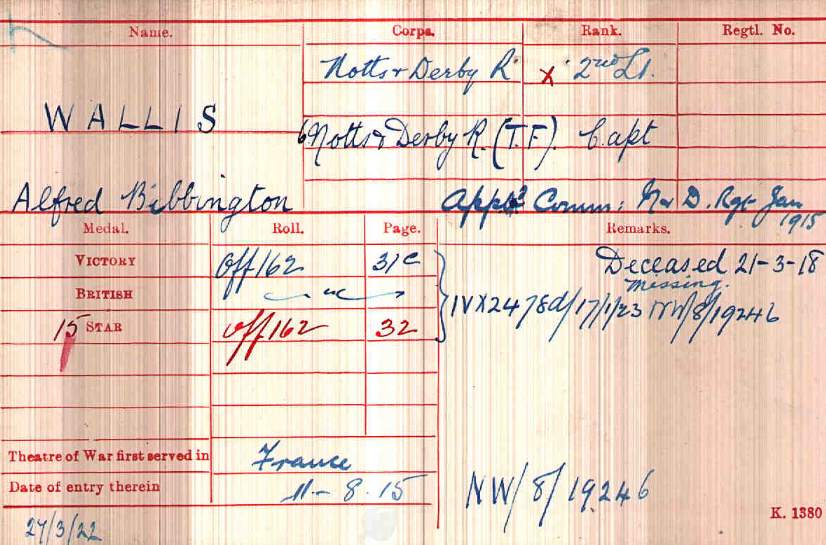 Name. Corps. Rank. Regtl. No.
Notts & Derby R X 2nd Lt.
WALLIS
6 Notts & Derby R. (T.F). Capt
Alfred Bibbington Apptd Comm: N & D. Rgt Jan 1915
Medal. Roll. Page. Remarks.
VICTORY Off/162 31C Deceased 21-3-18
Missing.
BRITISH
IVX2478d/17/1/23 NW/8/19246
15 STAR Off/162 32
Theatre of War first served in France
Date of entry therein 11-8-15 NW/8/19246
K. 1380
27/3/22